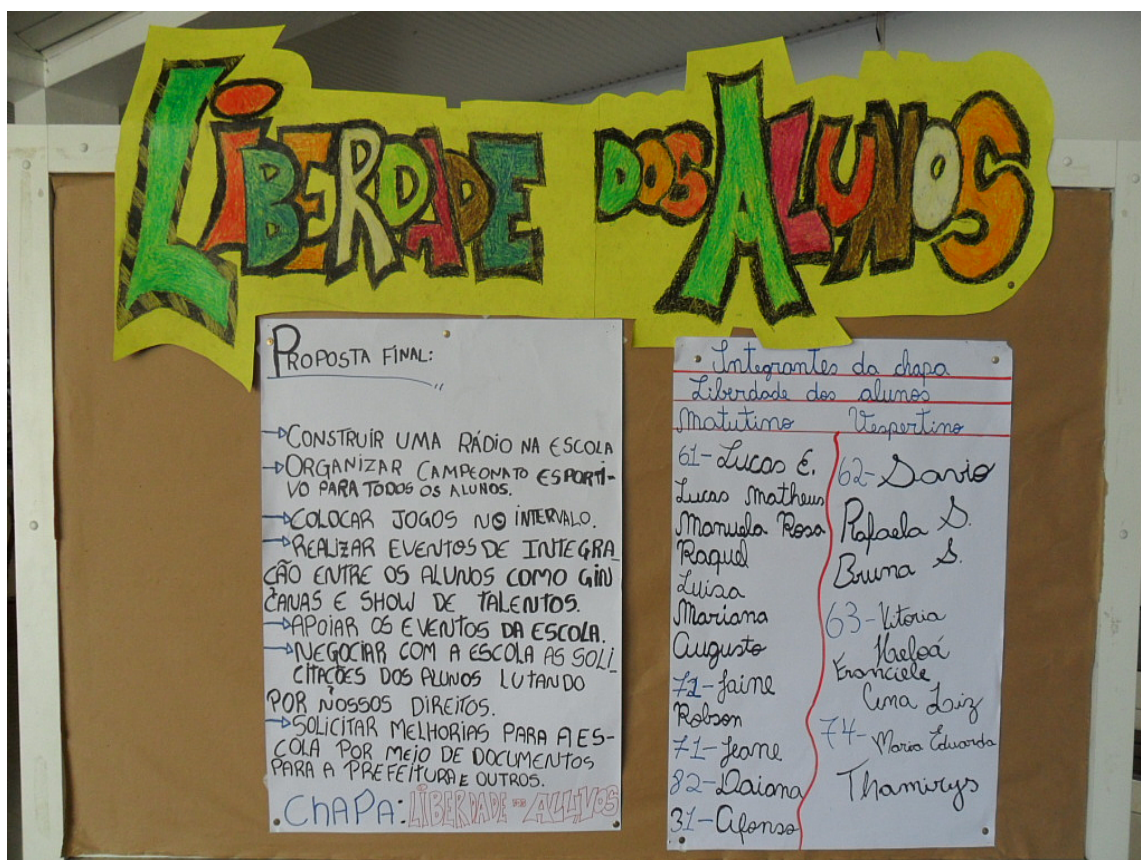 LIBERDADE DOS ALUNOS
PROPOSTA FINAL:
CONSTRUIR UMA RÁDIO NA ESCOLA
ORGANIZAR CAMPEONATO ESPORTI-
VO PARA TODOS OS ALUNOS.
COLOCAR JOGOS NO INTERVALO.
REALIZAR EVENTOS DE INTEGRA_
ÇÃO ENTRE OS ALUNOS COMO GIN
CANAS E SHOW DE TALENTOS.
APOIAR OS EVENTOS DA ESCOLA.
NEGOCIAR COM A ESCOLA AS SOLI_
CITAÇÕES DOS ALUNOS LUTANDO
POR NOSSOS DIREITOS.
SOLICITAR MELHORIAS PARA A ES-
COLA POR MEIO DE DOCUMENTOS
PARA A PREFEITURA E OUTROS.
CHAPA: LIBERDADE DOS ALUNOS
Integrantes da chapa
Liberdade dos alunos
Matutino
61-Lucas E.
Lucas Matheus
Manuela Rosa
Raquel
Luisa
Mariana
Augusto
72-Jaine
Robson
71-Jeane
82-Daiana
31-Afonso
Vespertino
62-Savio
Rafaela S.
Bruna S.
63-Vitoria
Heloá
Franciele
Ana Luiz
74-Maria Eduarda
Thamirys